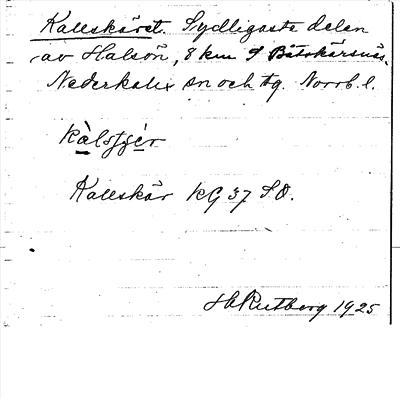 Kalleskäret. Sydligaste delen
av Halsön, 8 km S Båtskärsnäs.
Nederkalix sn och tg. Norrb. l.
Kalleskär KG 37 S.O.
H. Rutberg 1925